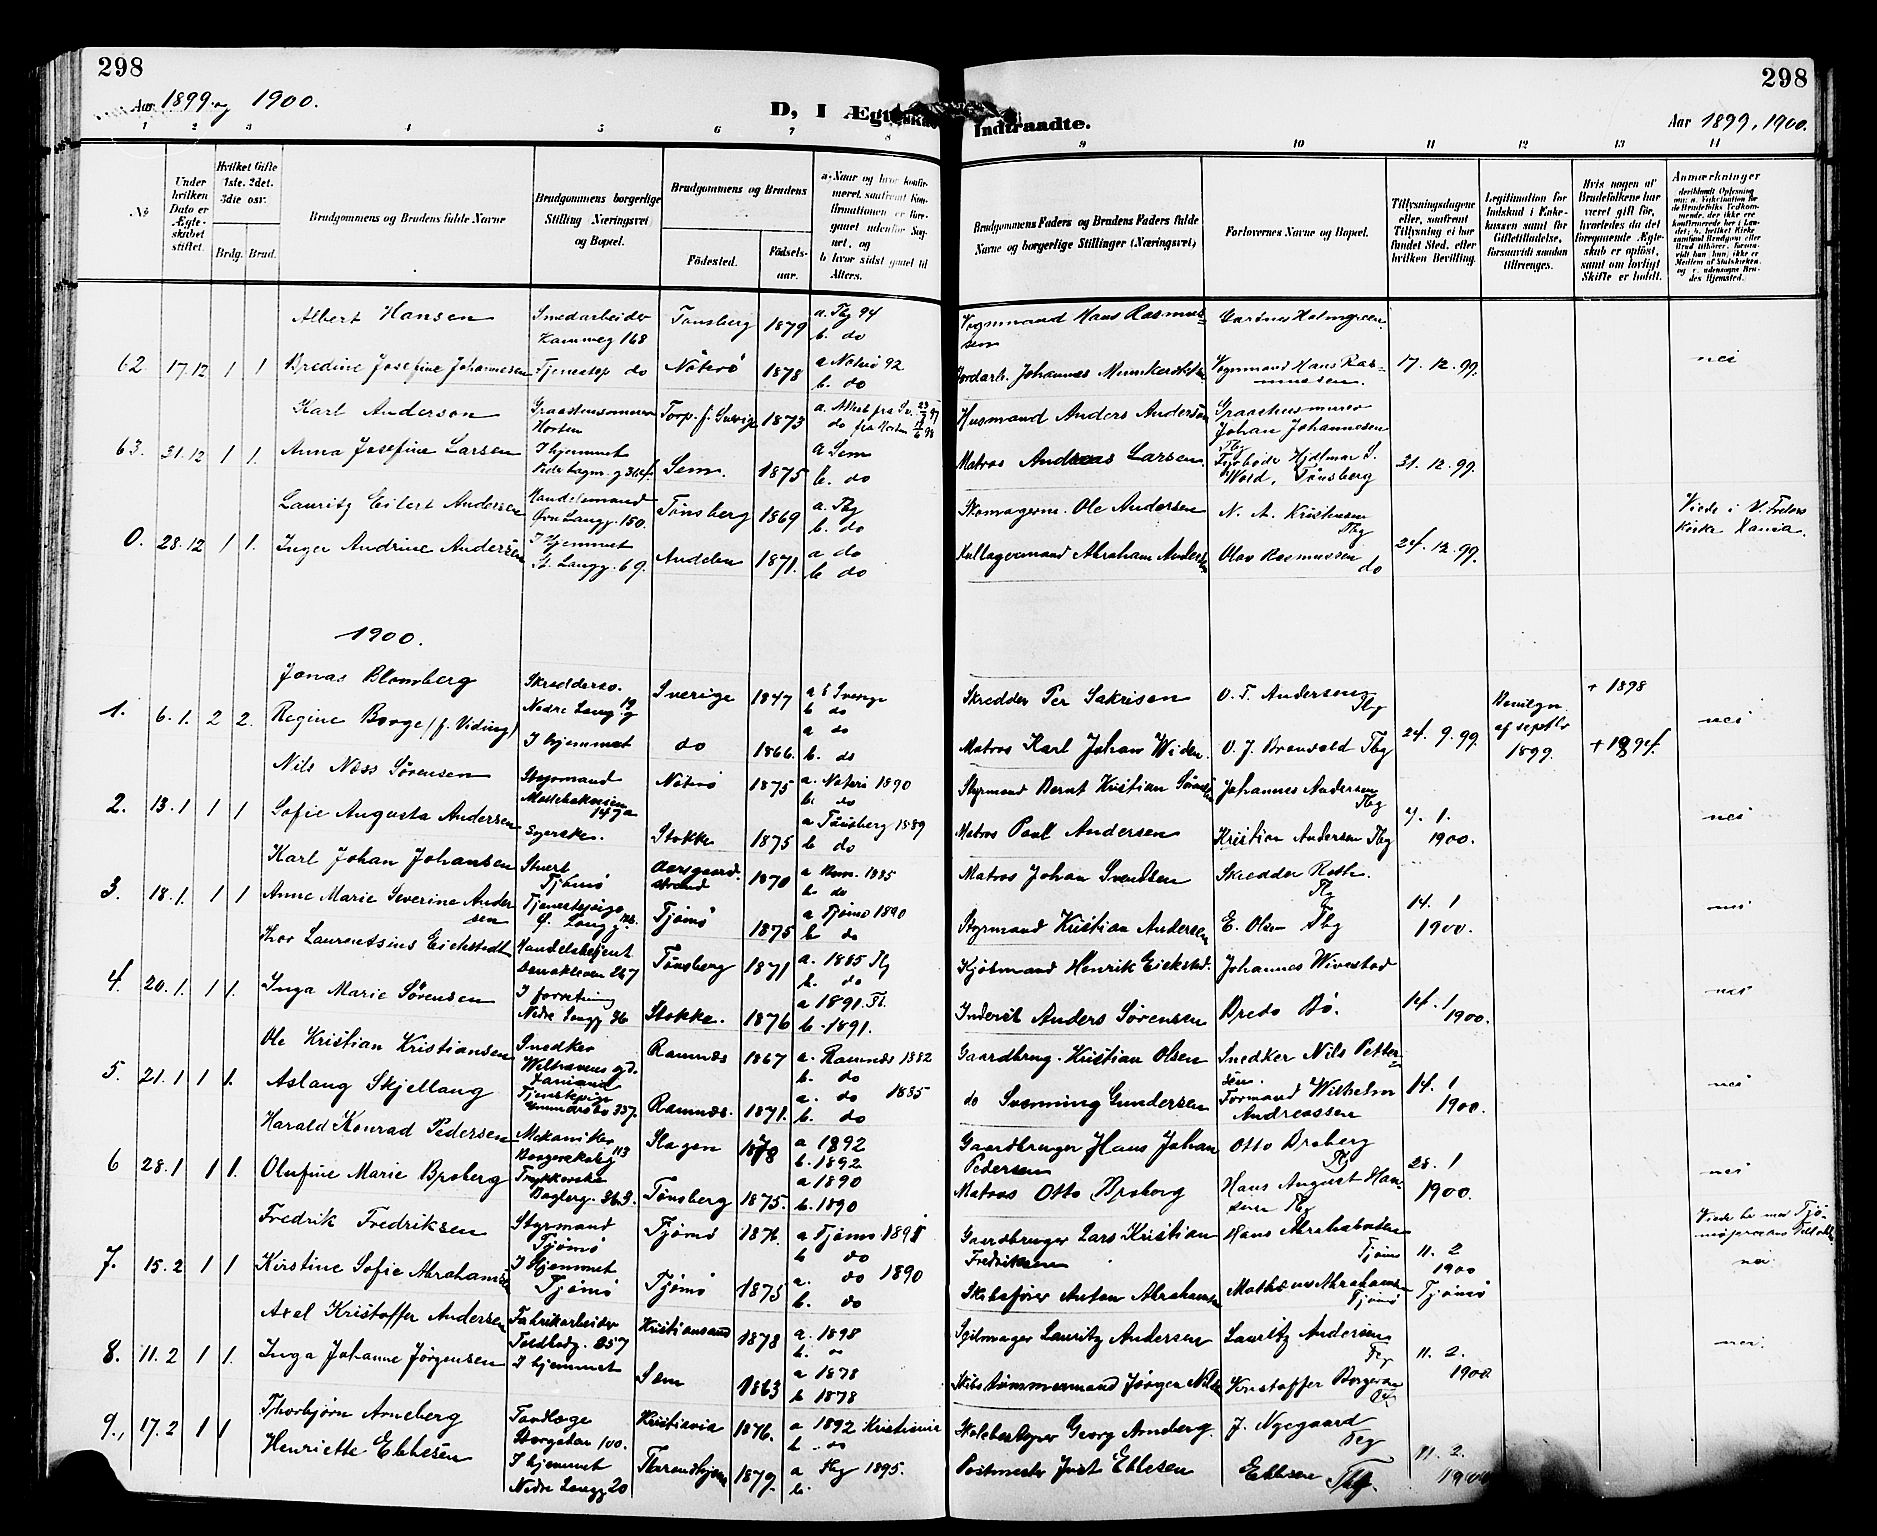 298
298
Aar 1899 og 1900.
D, I Ægteskab Indtraadte.
Aar 1899, 1900.
1 2 3 4 5 6 7 8 9 10 11 12 13 14
№
Under hvilken Dato er Ægteskabet stiftet.
Hvilket Gifte 1ste, 2det, 3die osv.
Brdg. Brud.
Brudgommens og Brudens fulde Navne
Brudgommens borgerlige Stilling (Næringsvei) og Bopæl.
Brudgommens og Brudens
Fødested.
Fødselsaar.
a. Naar og hvor konfirmeret, saafremt Konfirmationen er foregaaet udenfor Sognet, og
b. hvor sidst gaaet til Alters.
Brudgommens Faders og Brudens Faders fulde Navne og borgerlige Stillinger (Næringsvei)
Forlovernes Navne og Bopæl.
Tillysningsdagene eller, saafremt Tillysning ei har fundet Sted, efter hvilken Bevilling.
Legitimation for Indskud i Enkekassen samt for Giftetilladelse, forsaavidt saadan tiltrænges.
Hvis nogen af Brudefolkene har været gift før, hvorledes da det foregaaende Ægteskab er opløst, samt om lovligt Skifte er holdt.
Anmærkninger
Albert Hansen Smedarbeider 168 Tønsberg 1879 a. Tbg 94 b. do Vognmand Hans Rasmussen Gartner Holmgreen
62 17.12 1 1 Bredine Josefine Johannesen Tjenestep do Nøterø 1878 a Nøterø 92 b. do Jordarb. Johannes Vognmand Hans Rasmussen. 17. 12. 99. nei
Karl Anderson Horten Torp. f. Sverige 1873 a. Attest fra Sv. do fra Horten Husmand Anders Anderson Graastensmurer Johan Johannesen Tbg
63. 31.12 1 1. Anna Josefine Larsen I hjemmet Sem. 1875 a Sem b. do Matros Andreas Larsen. Fyrbøder Hjalmar S. Wold, Tønsberg 31. 12. 99.
Lauritz Eilert Andersen Handelsmand Øvre Langg. 150. Tønsberg 1869 a. Tbg b. do Skomagerm. Ole Andersen N. A. Kristensen Tbg
0. 28.12 1 1. Inger Andrine Andersen I hjemmet St. Langg. 69. Andebu 1871. a do b do Abraham Andersen Olav Rasmussen do 24. 12. 99. Viede i V. Frelsers Kirke Xania.
1900.
Jonas Blomberg Skræddersv. Nedre Langg 19 Sverige 1847 a i Sverige b do Skrædder Per Sakrisen O. T. Andersen Tbg + 1898
1. 6.1. 2 2. Regine Borge (f. Viding) I hjemmet do 1866. a do b. do Matros Karl Johan Widen O. J. Brovold Tbg 24. 9. 99. Bevilgn. af septbr 1899. + 1894. nei
Nils Næss Sørensen Styrmand 147a Nøterø 1875 a. Nøterø 1890 b. do Styrmand Bernt Kristian Sørensen Johannes Andersen Tbg
2. 13.1 1 1 Sofie Augusta Andersen Syerske. Stokke 1875 a Tønsberg 1889 b do Matros Paul Andersen Kristian Andersen Tbg 7. 1. 1900. nei
Karl Johan Johansen Stuert Tjømø Aasgaardstrand 1870 a 1885 b. do Matros Johan Svendsen Skrædder Roth. Tbg
3. 18.1. 1 1 Anne Marie Severine Andersen Tjenestepige Ø. Langg. Tjømø 1875 a Tjømø 1890 b do Styrmand Kristian Andersen E. Olsen Tbg 14. 1 1900. nei
Thor Laurentsius Eickstedt Handelsbetjent 247 Tønsberg 1871 a. 1885 Tbg b. do Kjøbmand Henrik Eickstedt Johannes Wivestad
4. 20.1. 1 1. Inga Marie Sørensen I forretning Nedre Langg 36 Stokke. 1876 a 1891. b. 1891. Inderst Anders Sørensen Bredo Bø. 14. 1 1900. nei
Ole Kristian Kristiansen Snedker Ramnæs 1867 a. Ramnæs 1882 b. do Gaardbrug. Kristian Olsen Snedker Nils Pettersen.
5. 21.1 1 1. Aslaug Skjellaug Tjenestepige 357. Ramnæs. 1871. a. do 1885 b. do do Svenning Gundersen Formand Wilhelm Andreassen 14. 1 1900. nei
Harald Konrad Pedersen Mekaniker 113 Slagen 1878 a 1892 b. 1892 Gaardbruger Hans Johan Pedersen Otto Broberg Tbg
6 28.1 1 1. Olufine Marie Broberg 363. Tønsberg 1875. a 1890 b. 1890 Matros Otto Broberg Hans August Hansen Tbg 28. 1 1900. nei
Fredrik Fredriksen Styrmand Tjømø Tjømø 1876. a Tjømø 1891 b do Gaardbruger Lars Kristian Fredriksen Hans Abrahamsen Tjømø
7. 15.2 1 1 Kirstine Sofie Abrahamsen I Hjemmet Tjømø Tjømø 1875 a. do 1890 b. do Skibsfører Anton Abrahamsen Mathæus Abrahamsen Tjømø 11. 2 1900 Tjømø nei
Axel Kristoffer Andersen Fabrikarbeider 257 Kristiansand 1878 a. 1898 b. do Seilmager Lauritz Andersen Lauritz Andersen Tbg
8. 11.2 1 1. Inga Johanne Jørgensen I hjemmet Sem 1863 a 1878 b 1878 Skibstømmermand Jørgen Nilsen Kristoffer Borgersen 11. 2. 1900. nei.
Thorbjørn Arneberg Tandlæge Storgaden 100. Kristiania 1876. a 1892 Kristiania b. do Skolebestyrer Georg Arneberg. J. Nygaard Tbg
9., 17.2 1 1 Henriette Ebbesen I hjemmet Nedre Langg 20 Tbg 1879. a Tbg 1895. b. Postmester Just Ebbesen Ebbesen Tbg. 11. 2. 1900